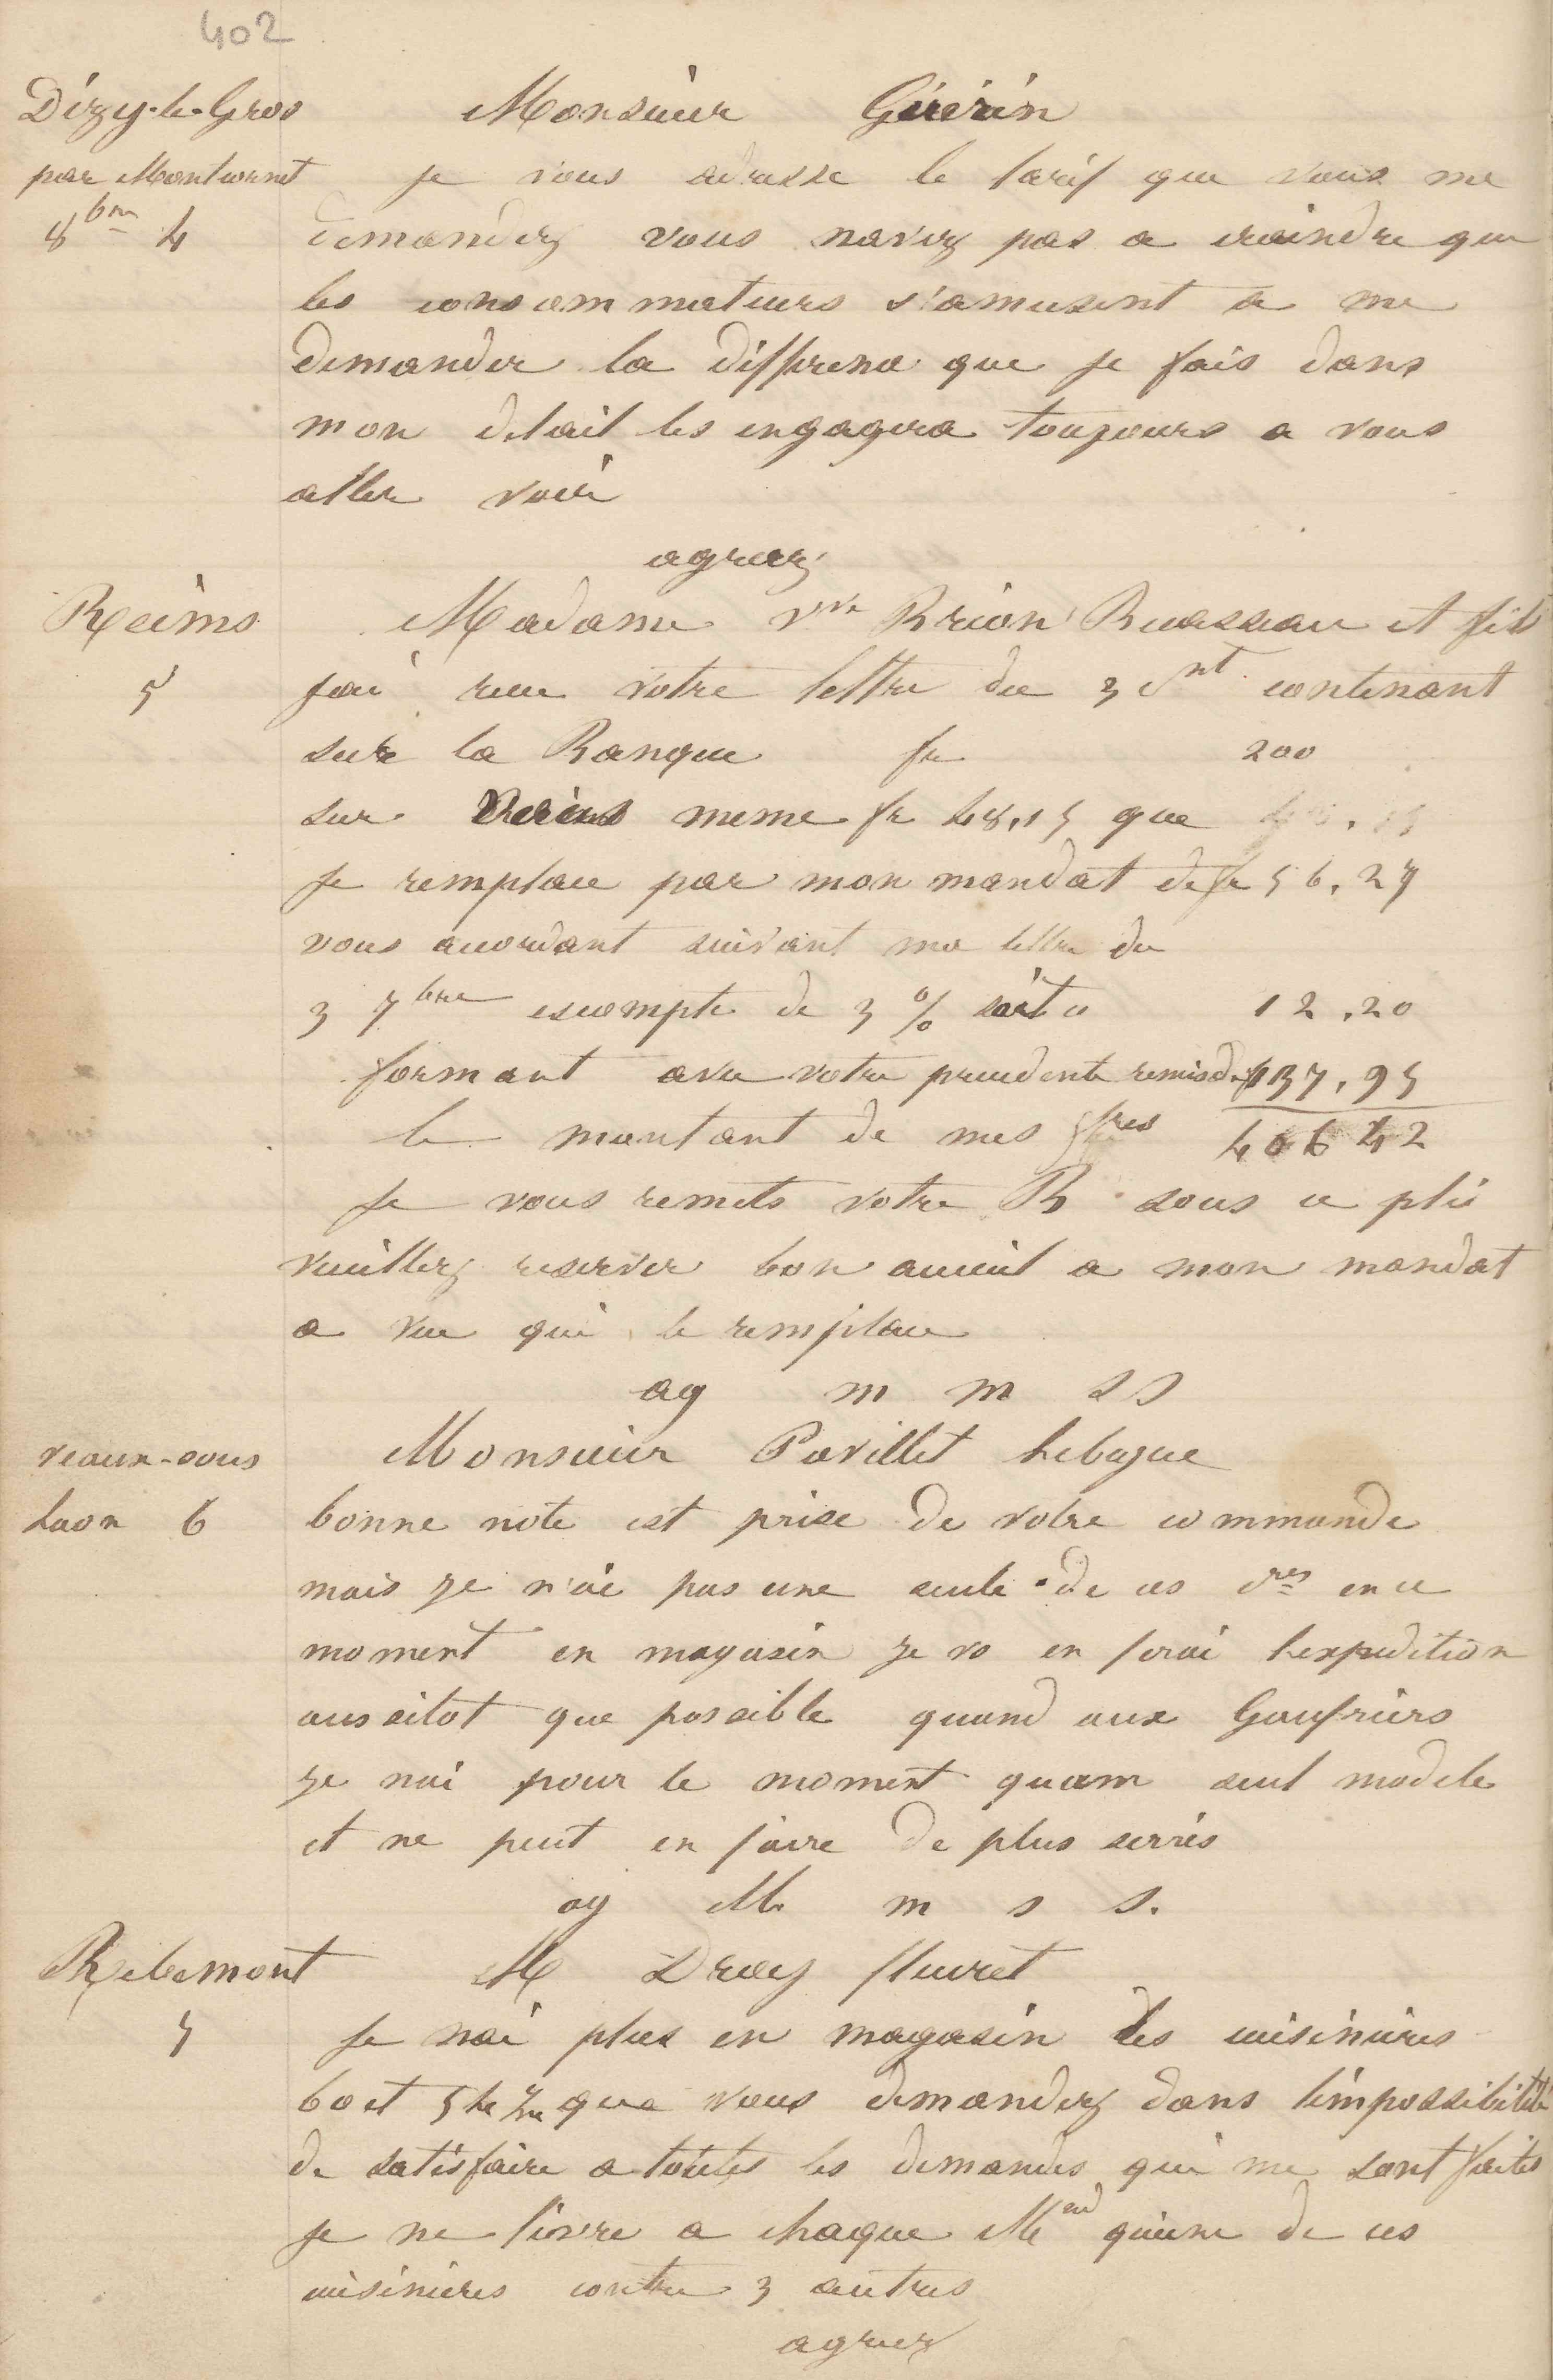 402
Dizy-le-Gros
par Montcornet
8bre 4
Monsieur Guérin
je vous adresse le tarif que vous me
demandez vous navez pas a craindre que
les consommateurs s'amusent a me
demander la diffrence que je fais dans
mon detail les engagera toujours a vous
aller voir
agreez
Reims
5
Madame Vve Brion et fils
jai recu votre lettre du 3 Cnt contenant
sur la Banque fr 200
sur Reims meme fr 48,15 que
je remplace par mon mandat de fr 56,27
vous accordant suivant ma lettre du
3 7bre escompte de 3 % soit 12,20
formant avec votre precedente remise de 137,95
le montant de mes fres 406 42
je vous remets votre B sous ce pli
veuillez reserver bon acceuil a mon mandat
a vue qui le remplace
ag m m s s
veaux-sous
Laon 6
Monsieur Pavillet Lebague
bonne note est prise de votre commande
mais je n'ai pas une seule de ces cres en ce
moment en magasin je vs en ferai lexpedition
aussitot que possible quand aux Gaufriers
je nai pour le moment quun seul modele
et ne peut en faire de plus serrés
ag M m s s.
Ribemont
5
M Druy fleuret
Je nai plus en magasin des cuisinieres
que vous demandez dans l'impossibilité
de satisfaire a toutes les demandes qui me sont faites
je ne livre a chaque Md qu'une de ces
cuisinieres contre 3 autres
agreez